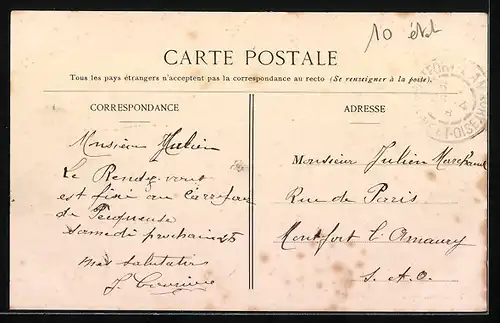 10
CARTE POSTALE
Tous les pays étrangers n'acceptent pas la correspondance au recto (Se renseigner à la poste).
CORRESPONDANCE
Monsieur Julien
Le Rendez-vous
est fixé au Carrefour
de Pecqueuse
samedi prochain 25
mes salutations
J.
ADRESSE
Monsieur Julien Marchand
Rue de Paris
Montfort l'Amaury
S. & O.
ET-OISE